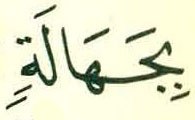 بِجَهَالَةٍ